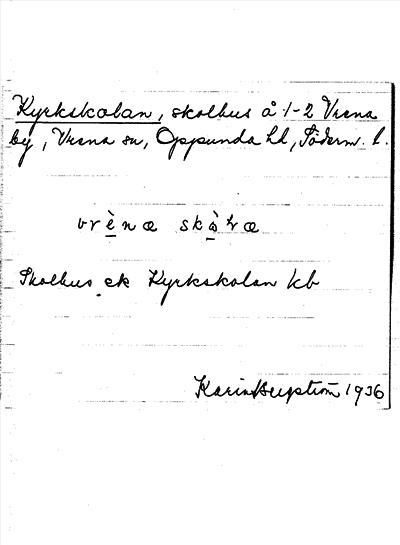 Kyrkskolan, skolhus å 1-2 Vrena
by, Vrena sn, Oppunda hd, Söderm. l.
vrènæ
Skolhus ek Kyrkskolan kb
Karin 1936